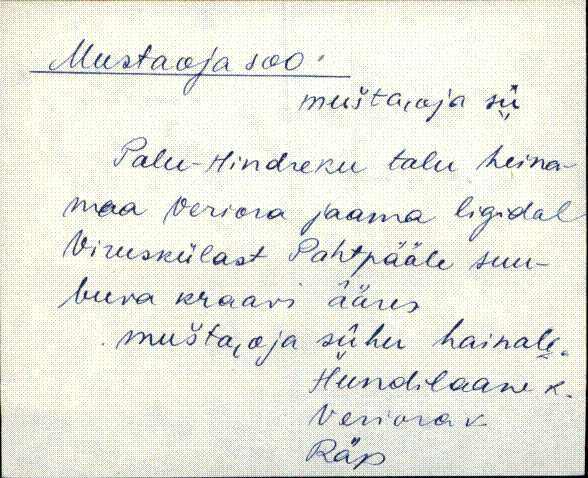 Mustaoja soo
mušta,oja sü
Palu-Hindreku talu heina-
maa Veriora jaama ligidal
Viruskülast Pahtpääle suu-
buva kraavi ääres
mušta,oja sühu hainalẹ.
Hündilaane k.
Veriora v
Räp